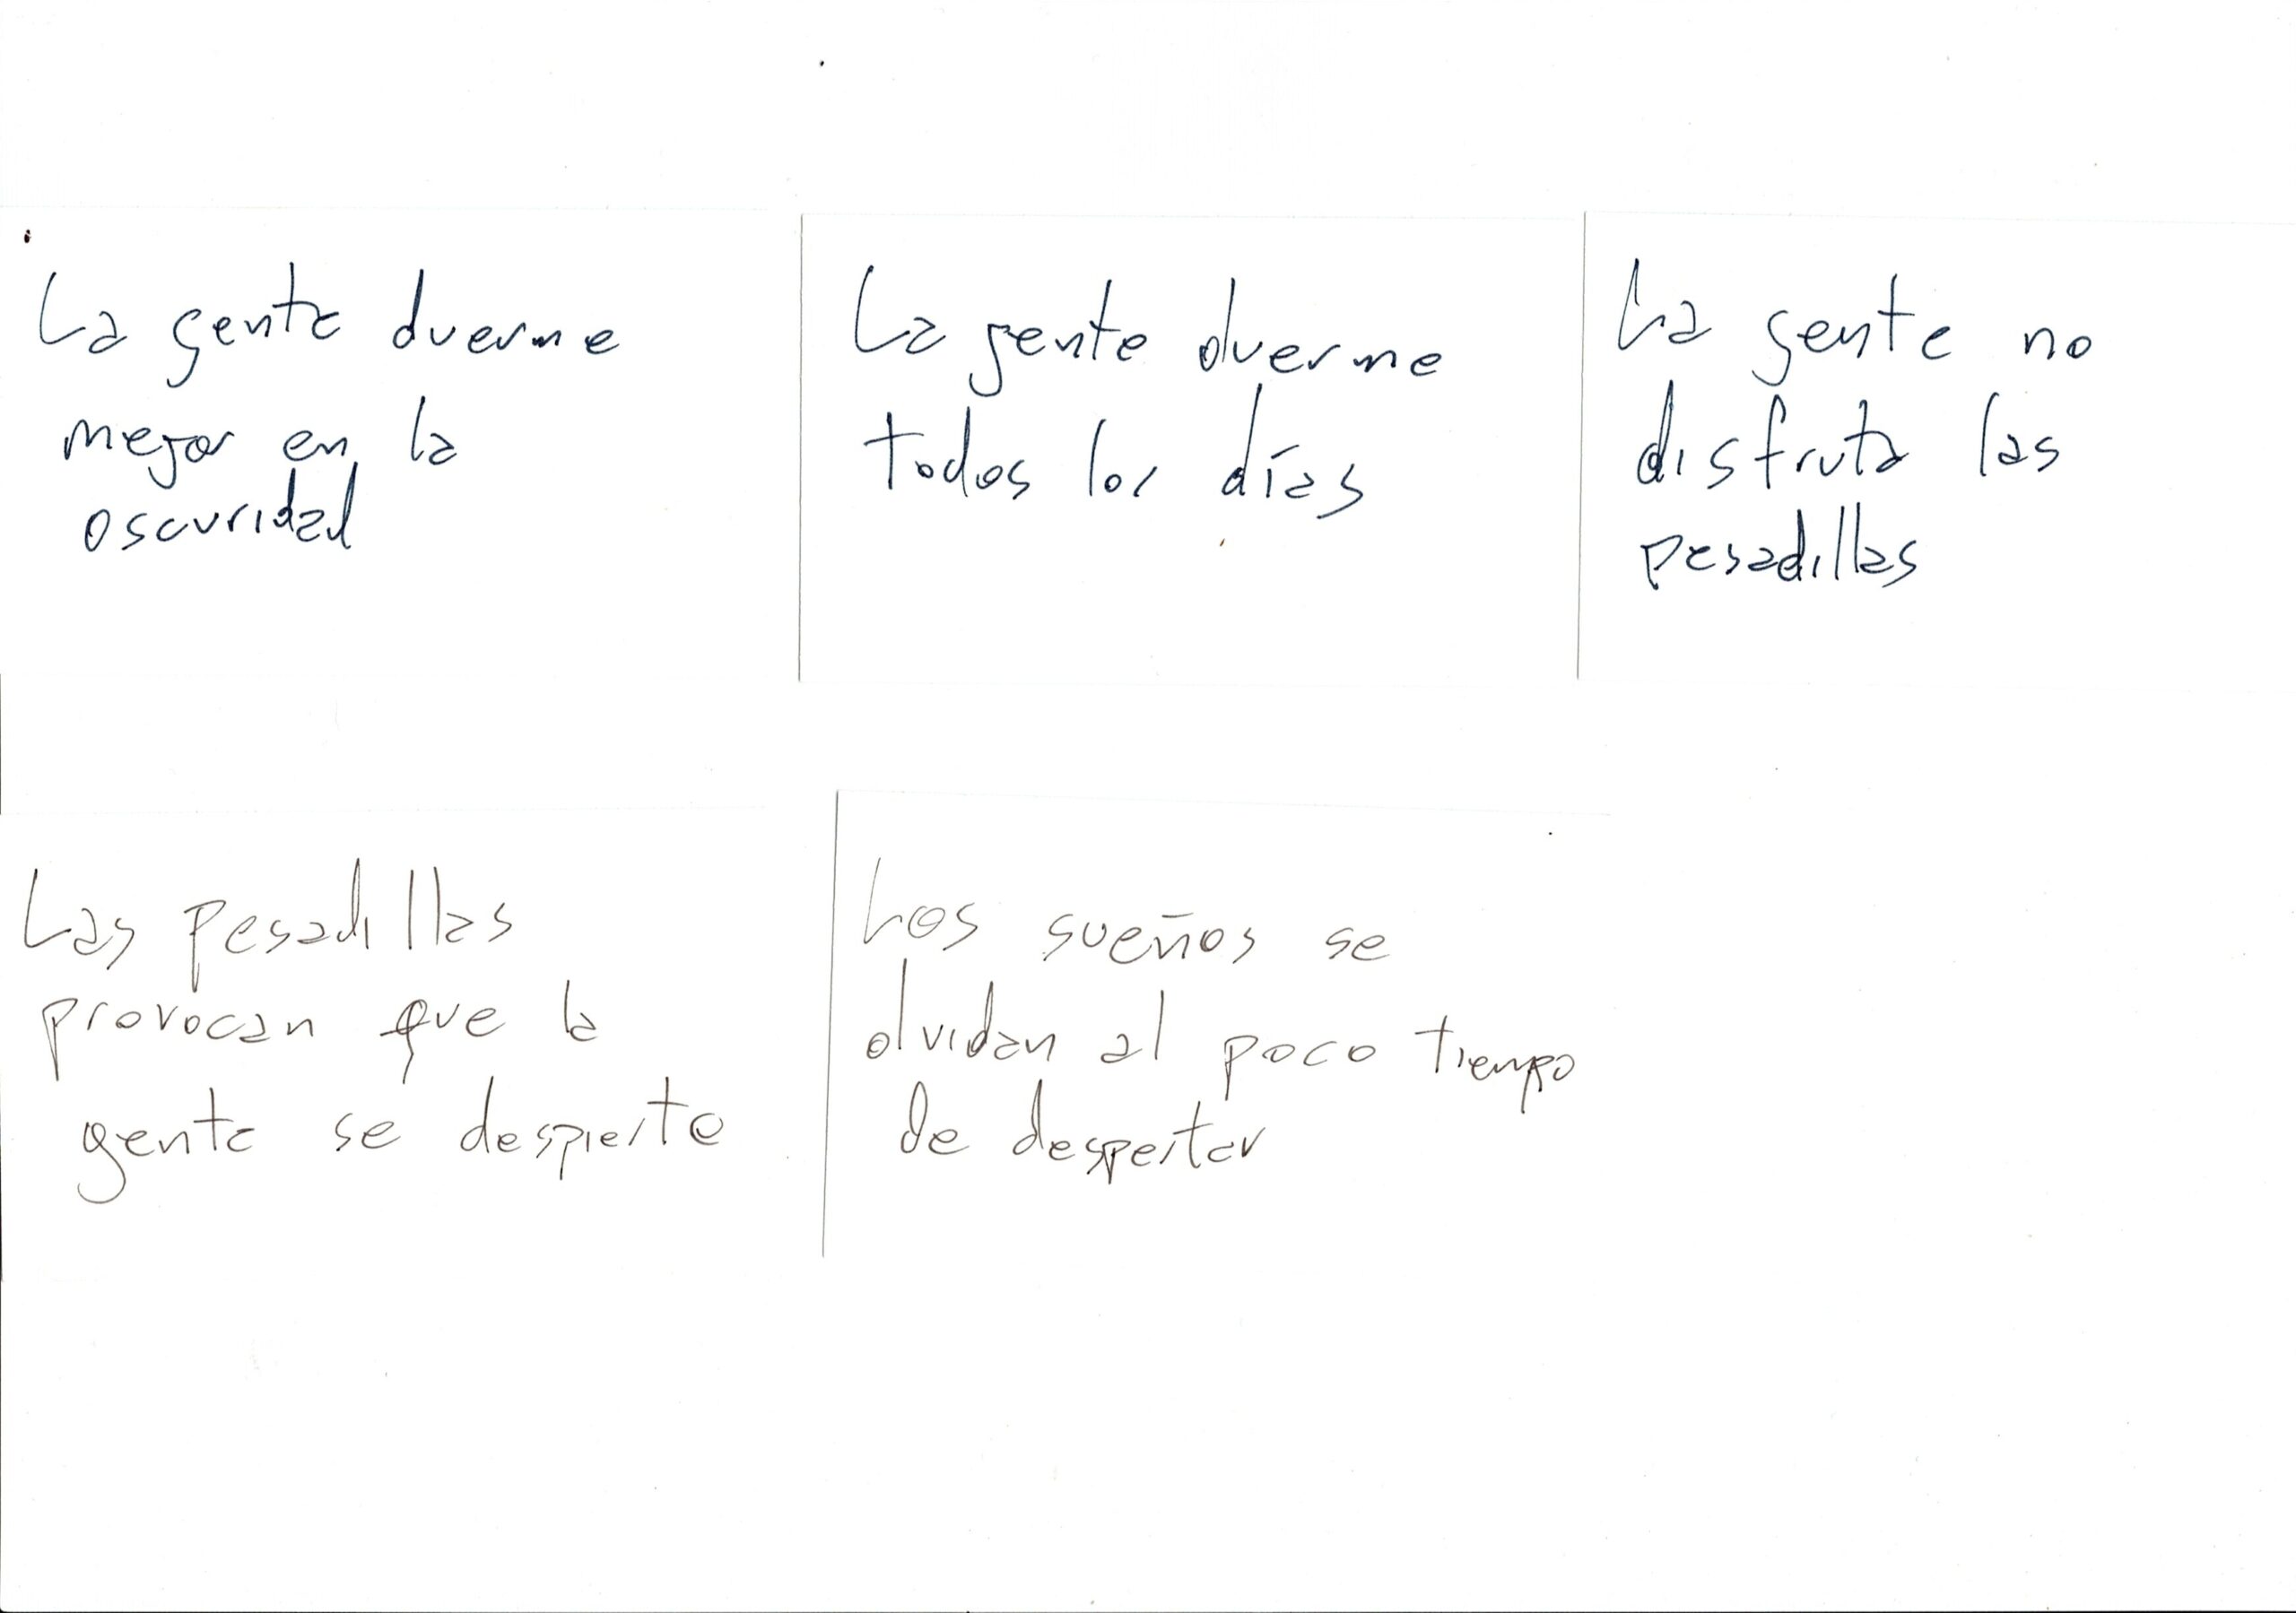 La gente duerme
mejor en la
oscuridad
La gente duerme
todos los días
La gente no
disfruta las
pesadillas
Las pesadillas
provocan que la
gente se despierte
Los sueños se
olvidan al poco tiempo
de despertar